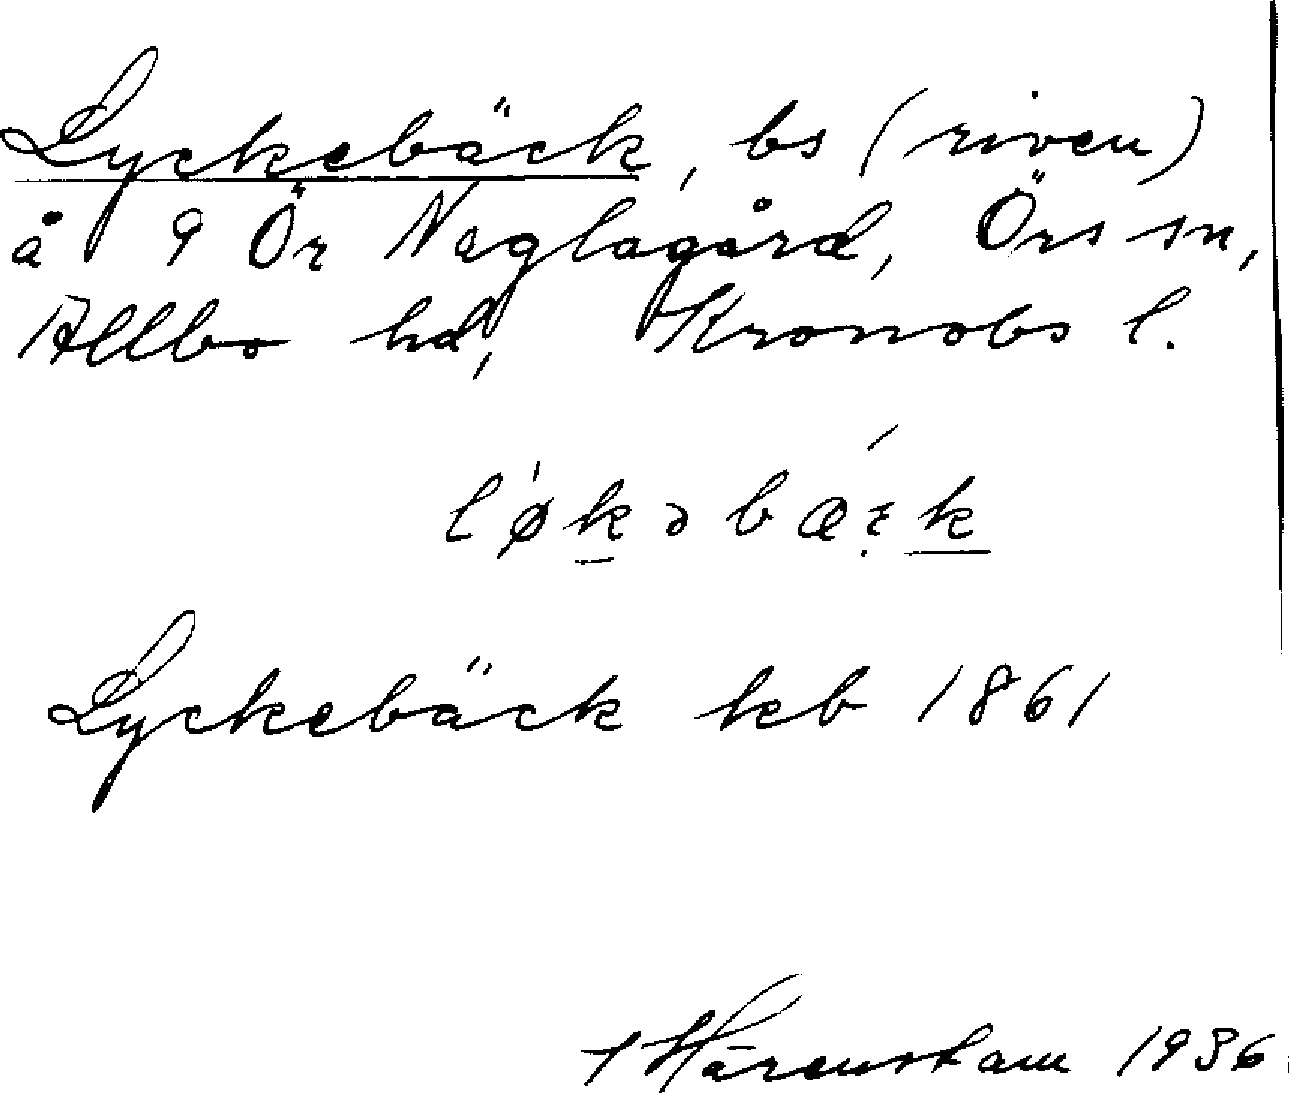 Lyckebäck, bs (riven)
å 9 Ör Naglagård, Örs sn,
Allbo hd, Kronobs l.
Lyckebäck kb 1861
Härenstam 1936